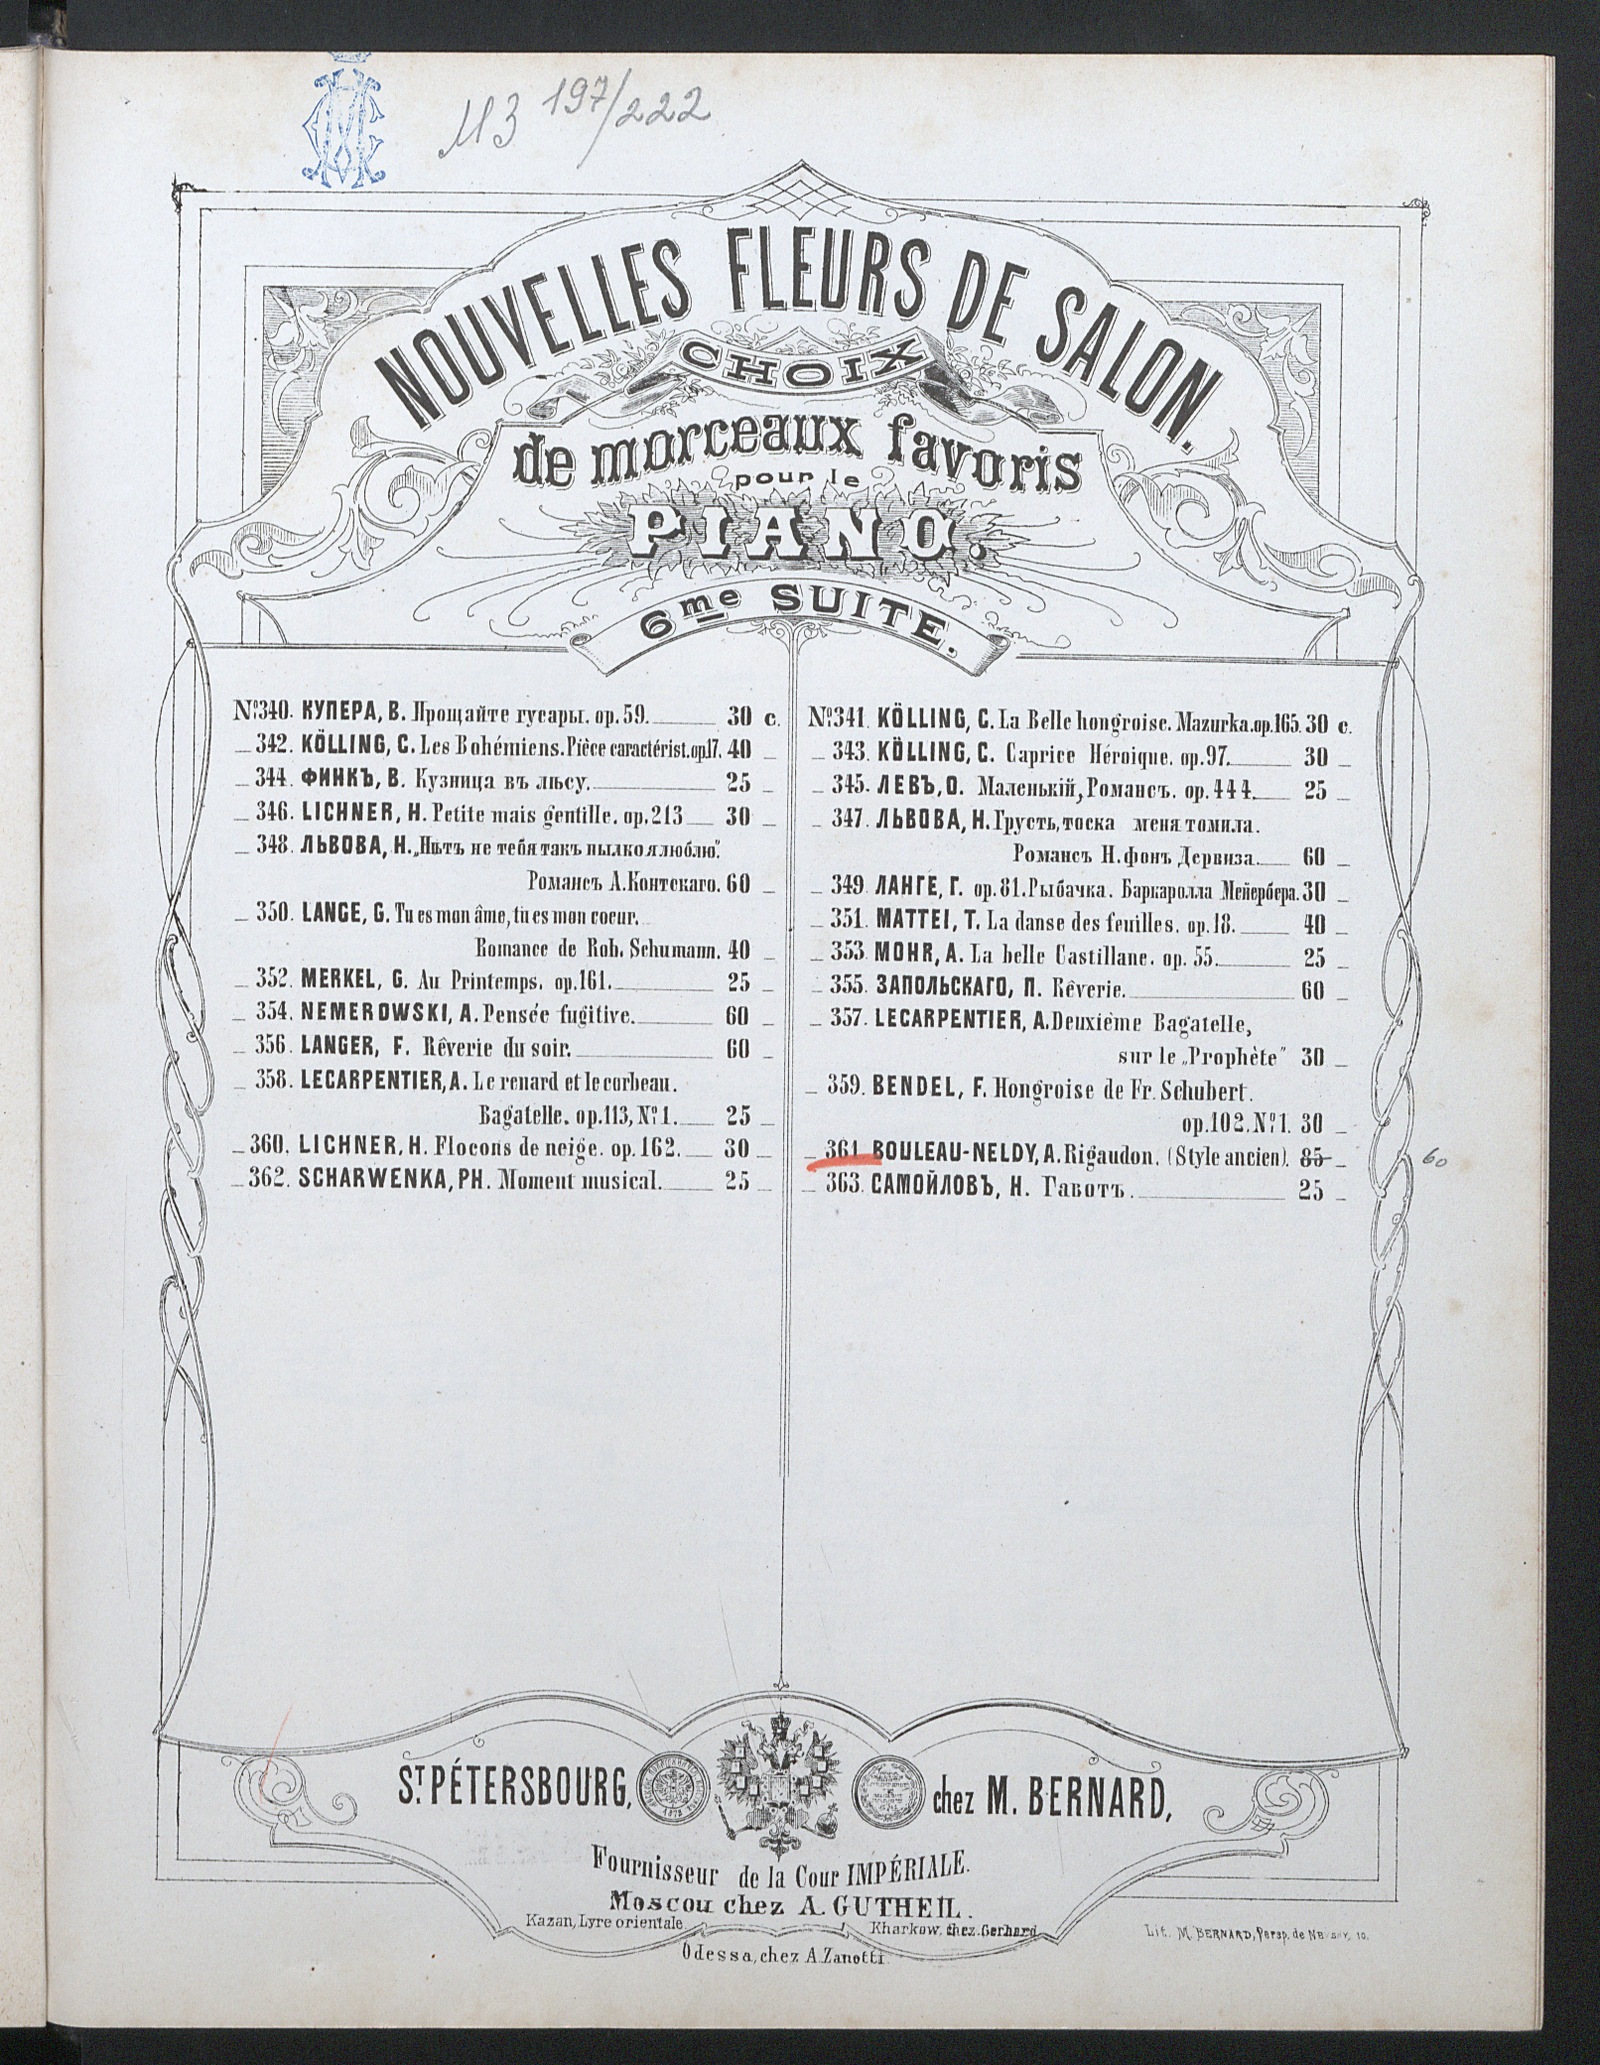 МЗ 197/222
NOUVELLES FLEURS DE SALON.
CHOIX
de morceaux favoris
pour le
PIANO.
6me SUITE.
№340. КУПЕРА, В. Прощайте гусары. op. 59. 30 c.
342. KÖLLING, C. Les Bohémiens. Pièce caractérist. op.17. 40
344. ФИНКЪ, В. Кузница въ лѣсу. 25
346. LICHNER, H. Petite mais gentille. op. 213 30
348. ЛЬВОВА, Н. „Нѣтъ не тебя такъ пылко я люблю”.
Романсъ А. Контскаго. 60
350. LANGE, G. Tu es mon âme, tu es mon coeur.
Romance de Rob. Schumann. 40
352. MERKEL, G. Au Printemps. op. 161. 25
354. NEMEROWSKI, A. Pensée fugitive. 60
356. LANGER, F. Rêverie du soir. 60
358. LECARPENTIER, A. Le renard et le corbeau.
Bagatelle. op. 113, №1. 25
360. LICHNER, H. Flocons de neige. op. 162. 30
362. SCHARWENKA, PH. Moment musical. 25
№341. KÖLLING, C. La Belle hongroise. Mazurka. op. 165. 30 c.
343. KÖLLING, C. Caprice Héroique. op. 97. 30
345. ЛЕВЪ, О. Маленькій, Романсъ. op. 444. 25
347. ЛЬВОВА, Н. Грусть, тоска меня томила.
Романсъ Н. фонъ Дервиза. 60
349. ЛАНГЕ, Г. op. 81. Рыбачка. Баркаролла Мейербера. 30
351. MATTEI, T. La danse des feuilles. op. 18. 40
353. MOHR, A. La belle Castillane. op. 55. 25
355. ЗАПОЛЬСКАГО, П. Rêverie. 60
357. LECARPENTIER, A. Deuxième Bagatelle,
sur le „Prophète” 30
359. BENDEL, F. Hongroise de Fr. Schubert.
op. 102. №1. 30
361. BOULEAU-NELDY, A. Rigaudon. (Style ancien). 85 60
363. САМОЙЛОВЪ, Н. Гавотъ. 25
ST. PÉTERSBOURG, chez M. BERNARD,
Fournisseur de la Cour IMPÉRIALE.
Moscou chez A. GUTHEIL.
Kazan, Lyre orientale. Kharkow, chez Gerhard
Odessa, chez A. Zanotti.
Lit. M. BERNARD, Persp. de Nevsky, 10.